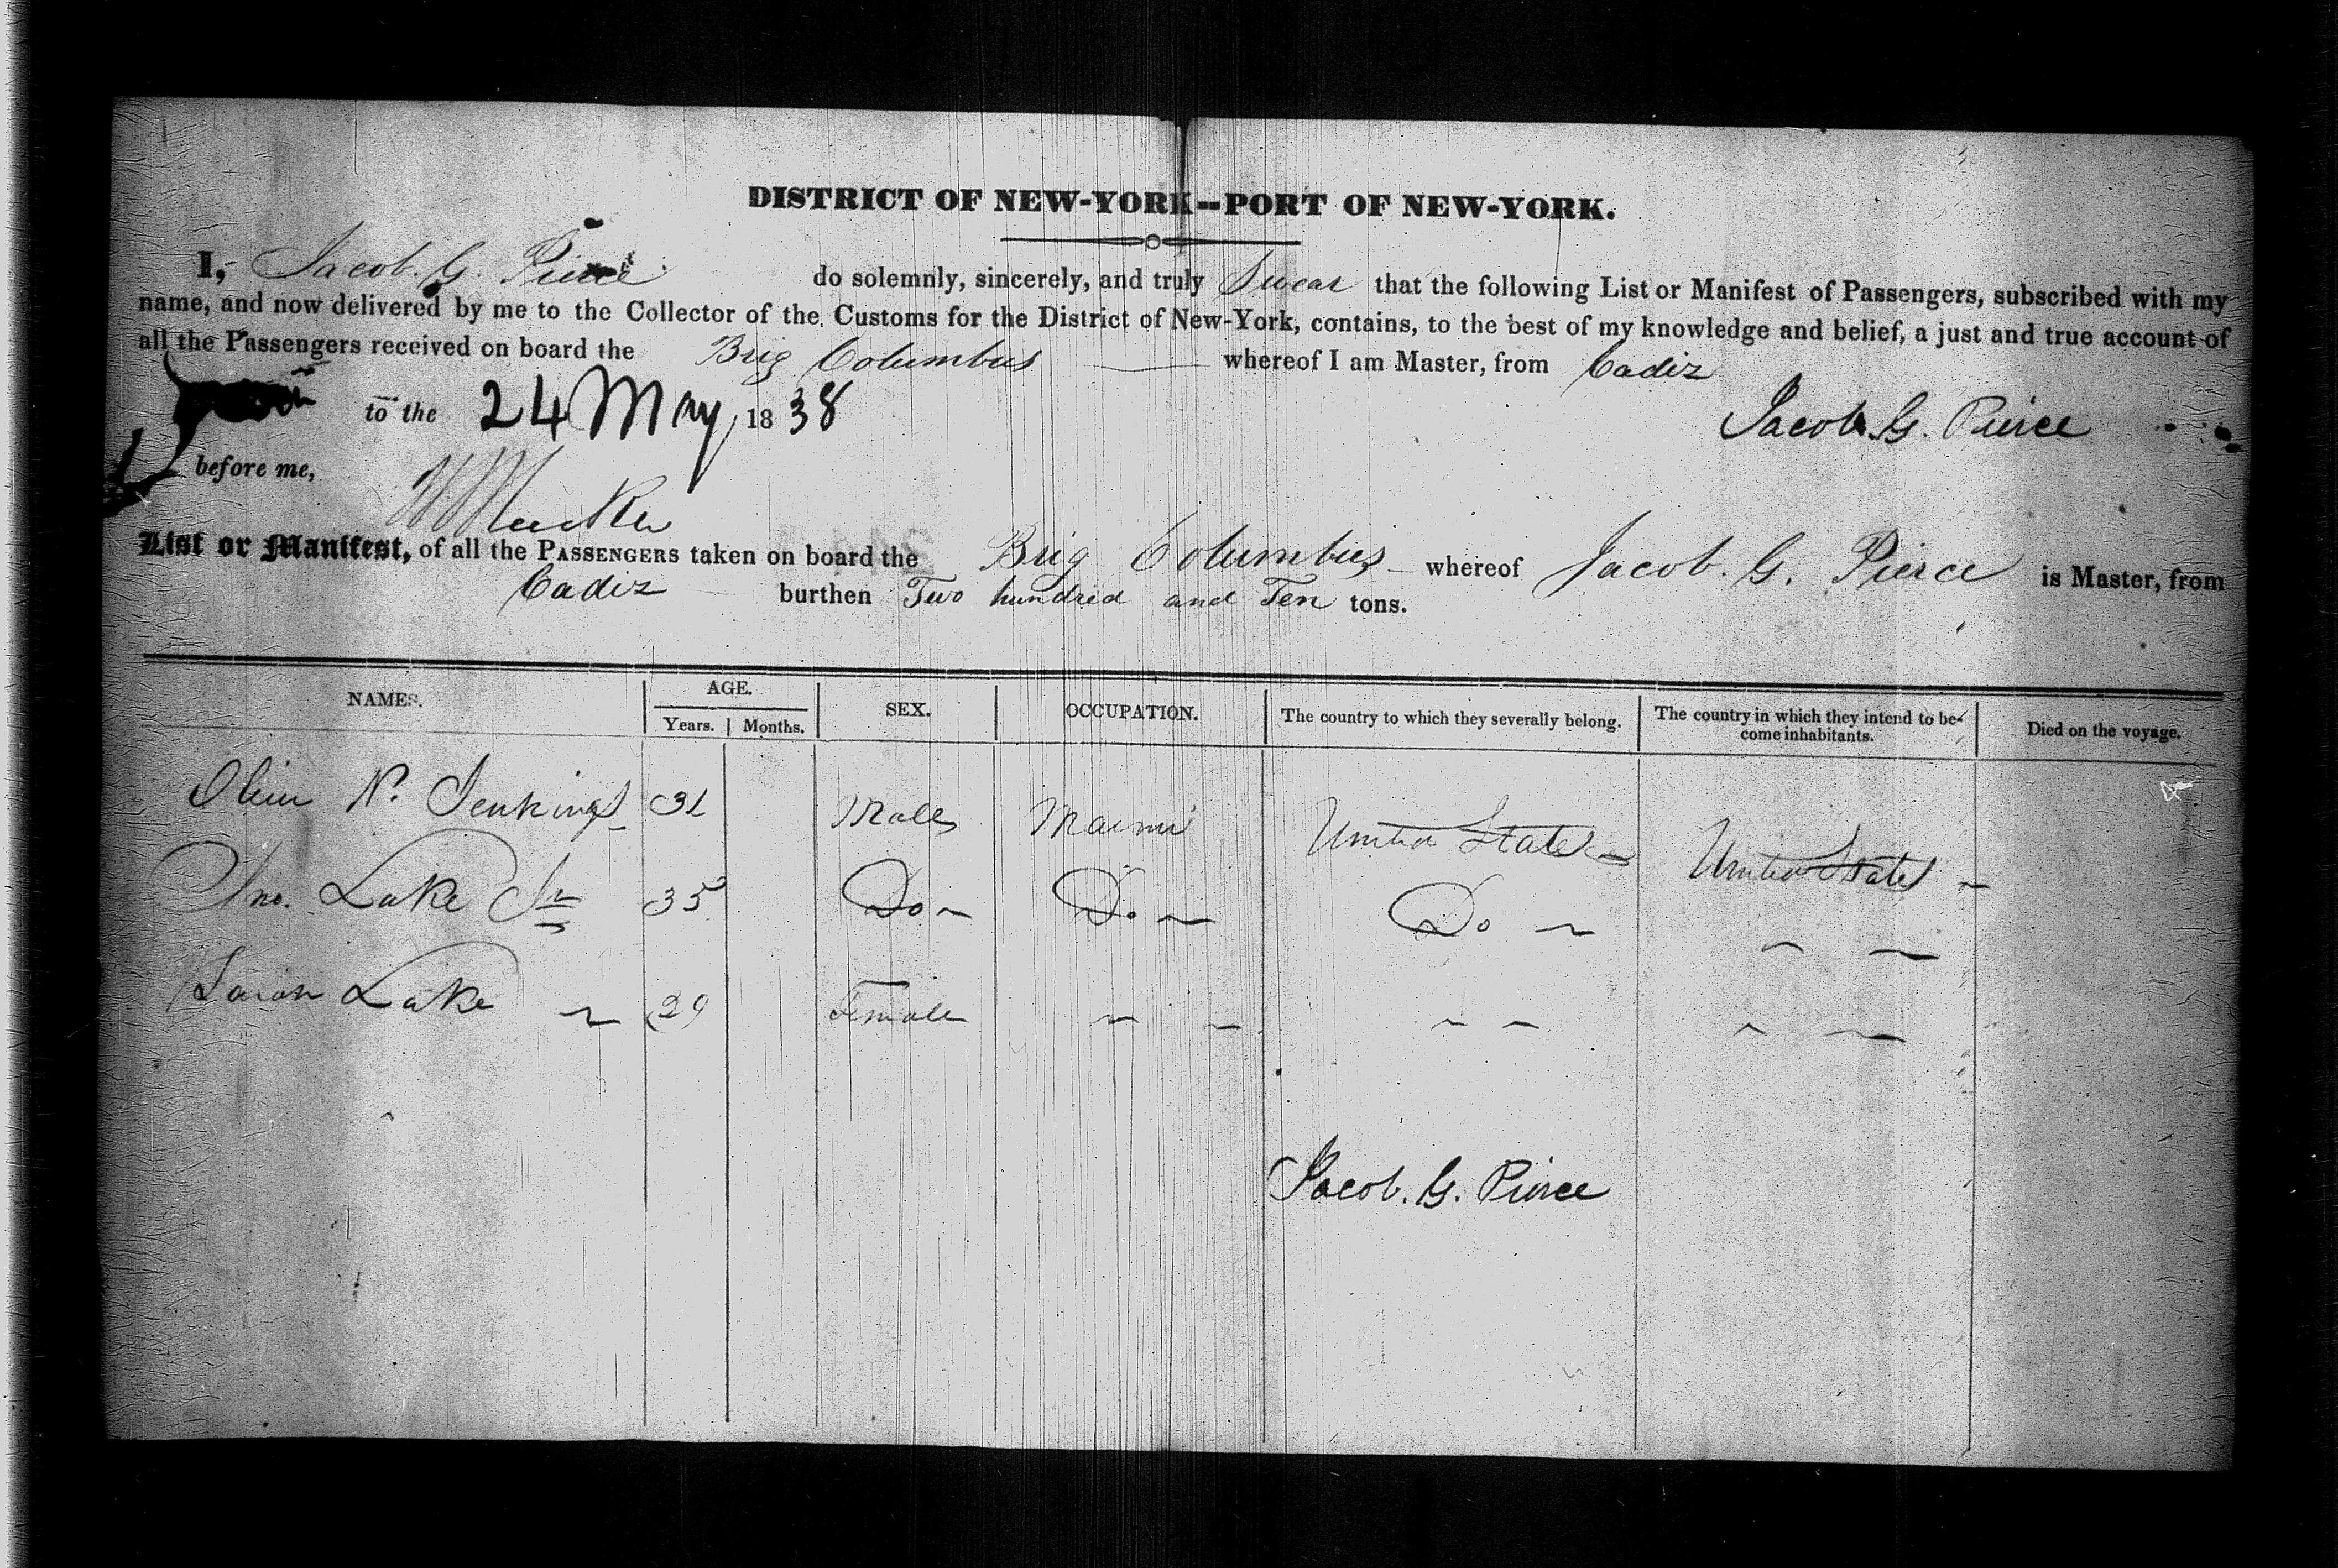 DISTRICT OF NEW-YORK--PORT OF NEW-YORK.
I, Jacob. G. Pierce do solemnly, sincerely, and truly Swear that the following List or Manifest of Passengers, subscribed with my
name, and now delivered by me to the Collector of the Customs for the District of New-York, contains, to the best of my knowledge and belief, a just and true account of
all the Passengers received on board the Brig Columbus whereof I am Master, from Cadiz
to the 24 May 1838
Jacob. G. Pierce
before me,
List or Manifest, of all the PASSENGERS taken on board the Brig Columbus whereof Jacob. G. Pierce is Master, from
Cadiz burthen Two hundred and Ten tons.
NAMES. AGE. SEX. OCCUPATION. The country to which they severally belong. The country in which they intend to be-
come inhabitants. Died on the voyage.
Years. Months.
N. Jenkings Male United States United States
Jno. Lake Jr 35 Do Do Do
Sarah Lake 29 Female
Jacob. G. Pierce